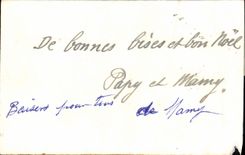 De bonnes bises et bon Noël
Papy et Mamy
Baisers pour tous de Mamy